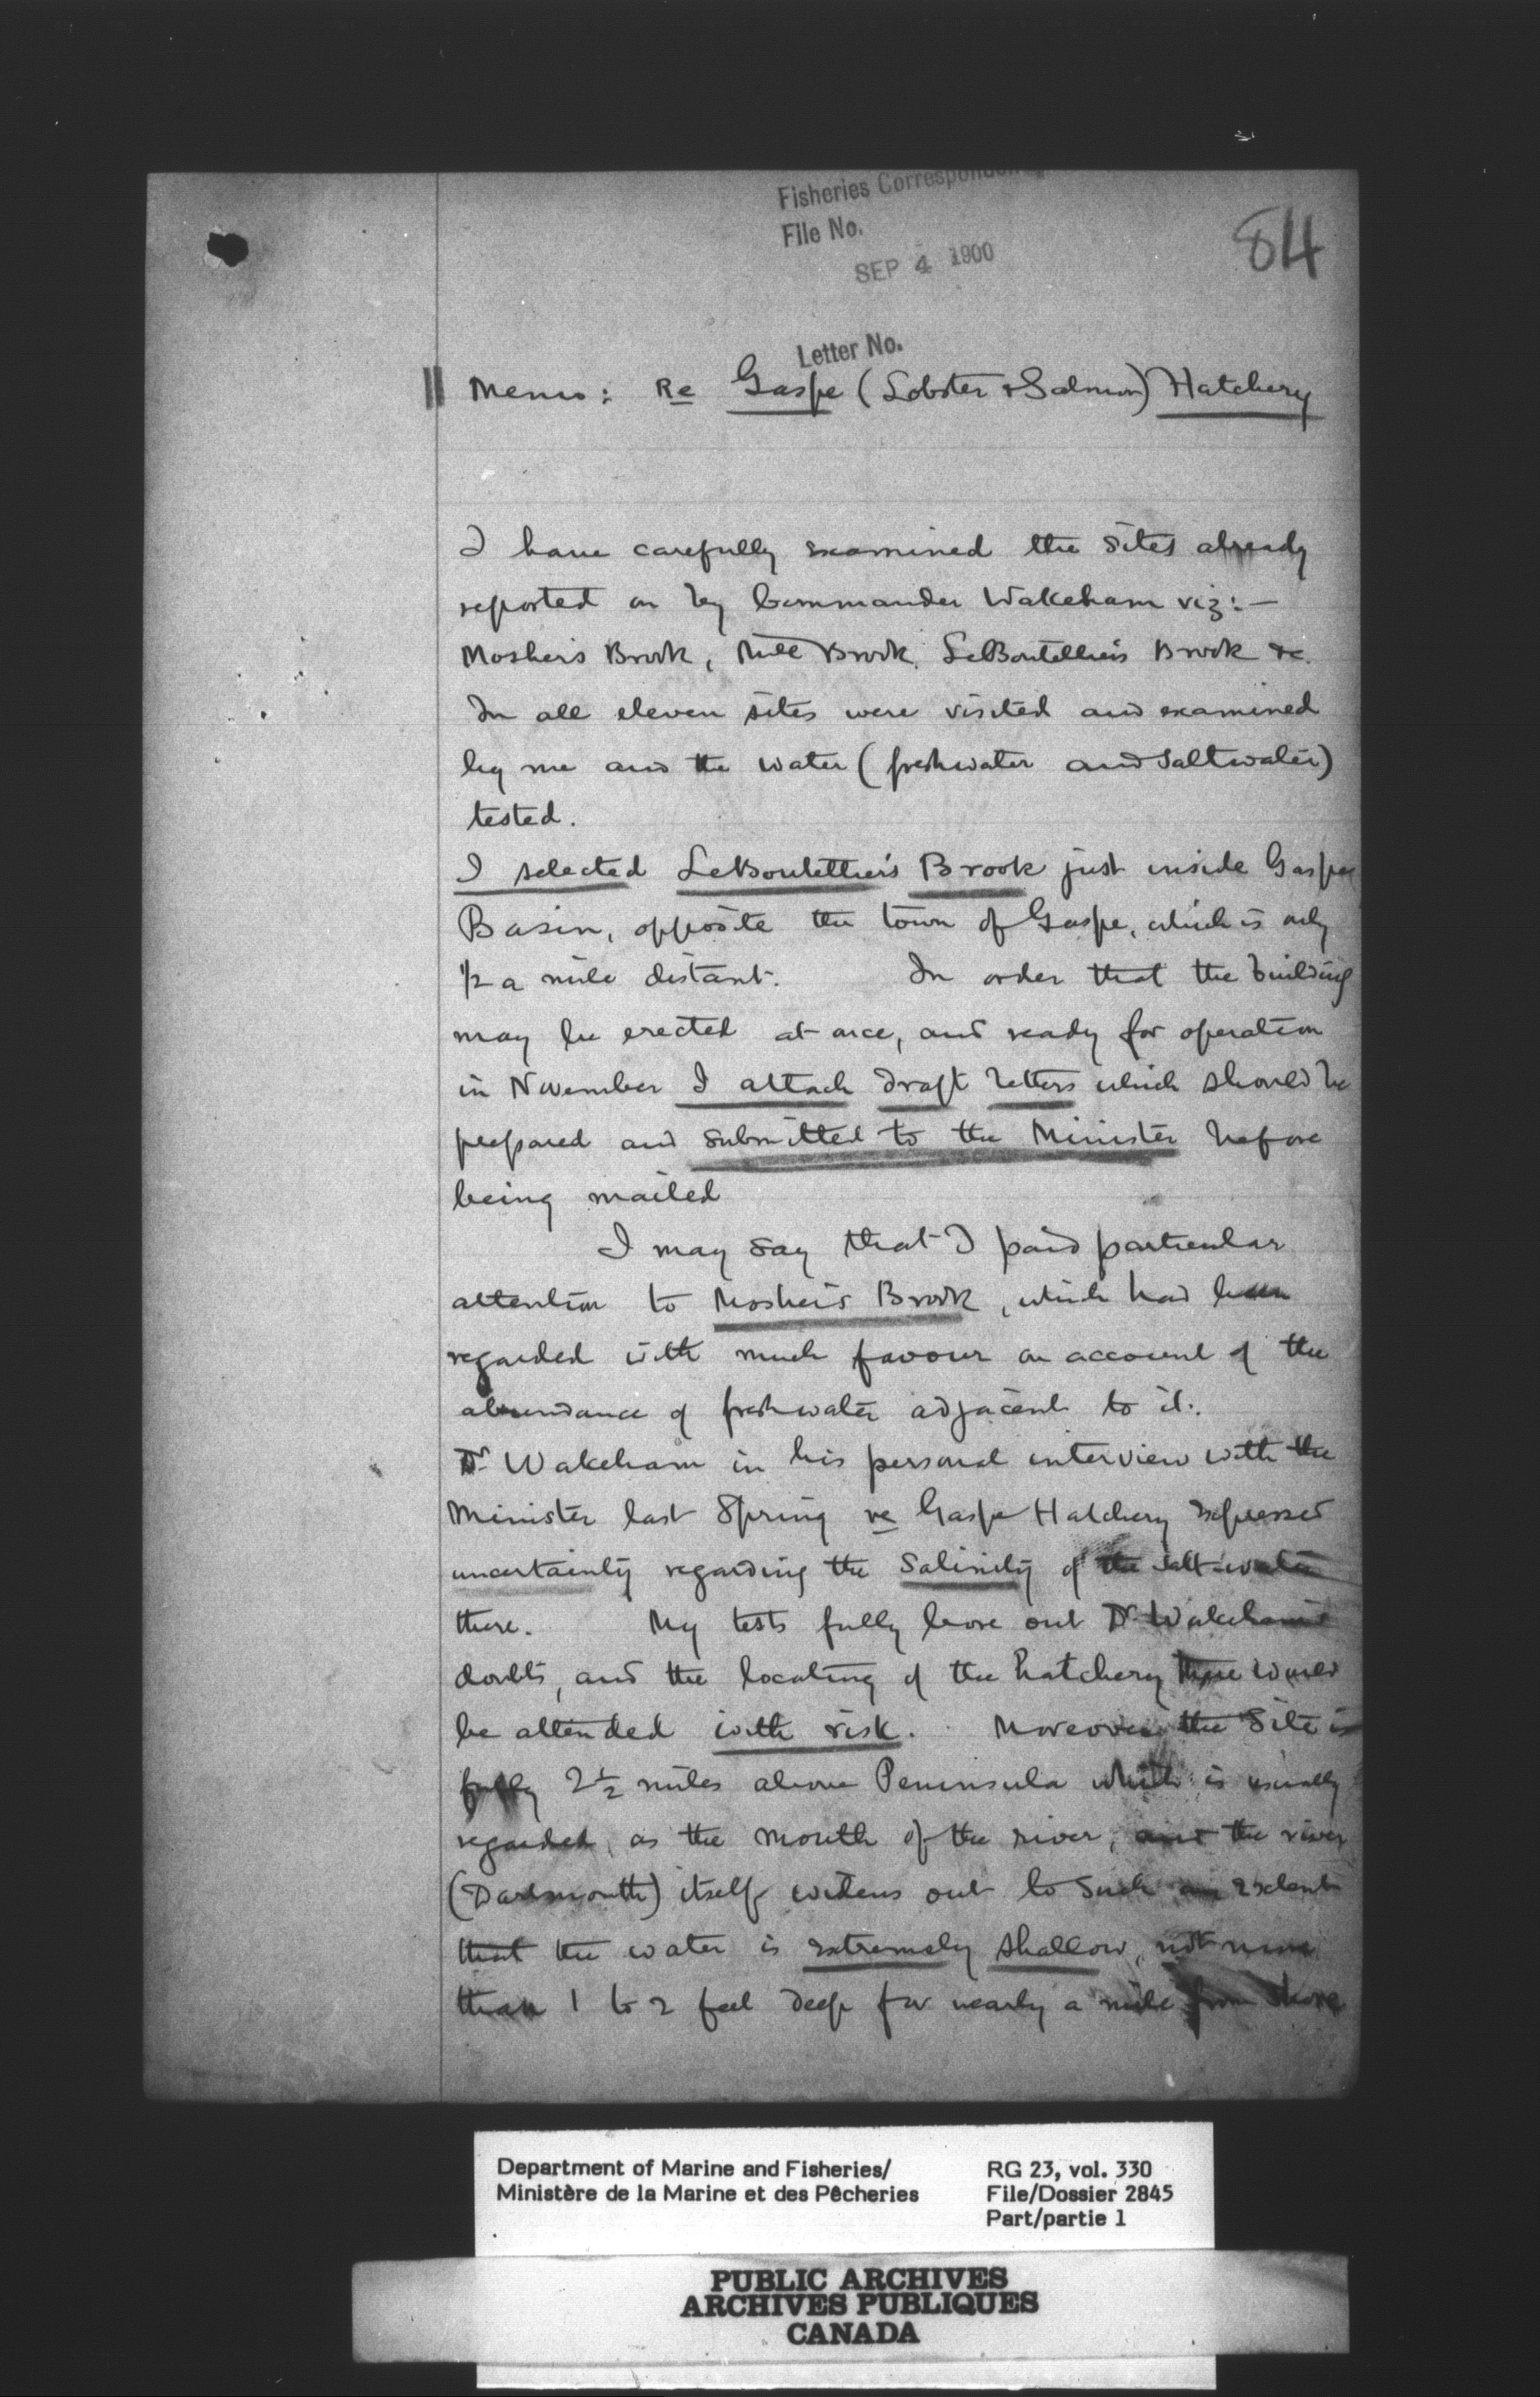 Fisheries Correspondence
File No.
SEP 4 1900
84
Letter No.
Memo: Re Gaspe (Lobster & Salmon) Hatchery
I have carefully examined the sites already
reported on by Commander Wakeham viz:—
Mosher's Brook, Mill Brook, LeBoutellier's Brook &c.
In all eleven sites were visited and examined
by me and the water (freshwater and saltwater)
tested.
I selected LeBoutellier's Brook just inside Gaspe
Basin, opposite the town of Gaspe, which is only
1/2 a mile distant. In order that the building
may be erected at once, and ready for operation
in November I attach draft letters which should be
prepared and submitted to the Minister before
being mailed
I may say that I paid particular
attention to Mosher's Brook, which had been
regarded with much favour on account of the
abundance of freshwater adjacent to it.
Dr Wakeham in his personal interview with the
Minister last Spring re Gaspe Hatchery expressed
uncertainty regarding the Salinity of the salt-water
there. My tests fully bore out Dr Wakeham's
doubts, and the locating of the hatchery there would
be attended with risk. Moreover the Site is
fully 2 1/2 miles above Peninsula which is usually
regarded, as the mouth of the river, and the river
(Dartmouth) itself widens out to such an extent
that the water is extremely shallow, not more
than 1 to 2 feet deep for nearly a mile from shore
Department of Marine and Fisheries/
Ministère de la Marine et des Pêcheries
RG 23, vol. 330
File/Dossier 2845
Part/partie 1
PUBLIC ARCHIVES
ARCHIVES PUBLIQUES
CANADA